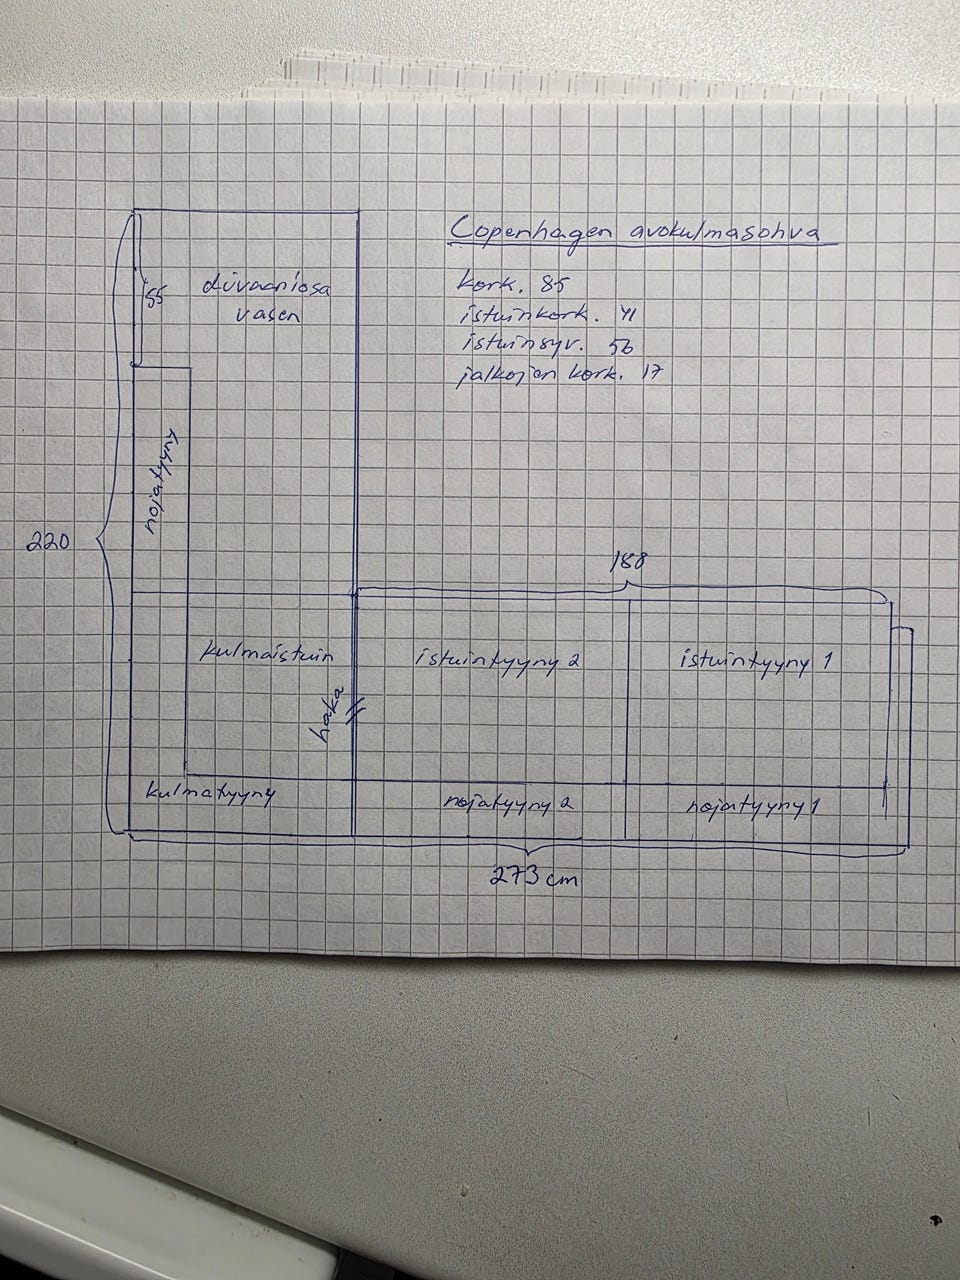 Copenhagen avokulmasohva
kork. 85
istuinkork. 41
istuinsyv. 56
jalkojen kork. 17
55
divaaniosa
vasen
nojatyyny
220
188
kulmaistuin
istuintyyny 2
istuintyyny 1
haka
kulmatyyny
nojatyyny 2
nojatyyny 1
273 cm